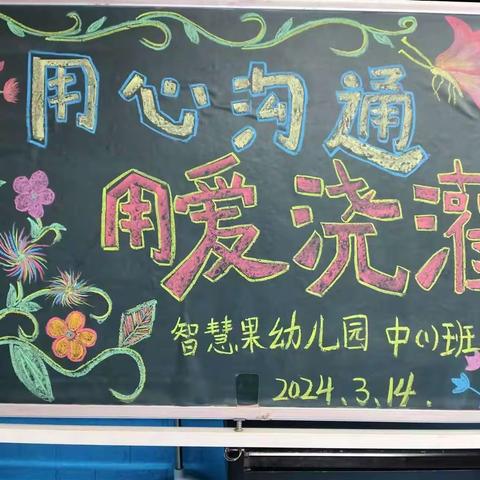 用心沟通
用爱浇灌
智慧果幼儿园 中(1)班
2024.3.14.